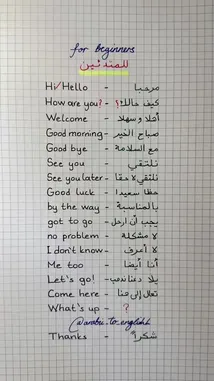 for beginners
للمبتدئين
Hi/Hello - مرحبا
How are you? - كيف حالك؟
Welcome - أهلا و سهلا
Good morning - صباح الخير
Good bye - مع السلامة
See you - نلتقي
See you later - نلتقي لاحقا
Good luck - حظا سعيدا
by the way - بالمناسبة
got to go - يجب أن ارحل
no problem - لا مشكلة
I don't know - لا أعرف
Me too - أنا أيضا
Let's go! - يلا دعنا نذهب
Come here - تعال إلى هنا
What's up - ?
@arabic_to_english
Thanks - شكرا